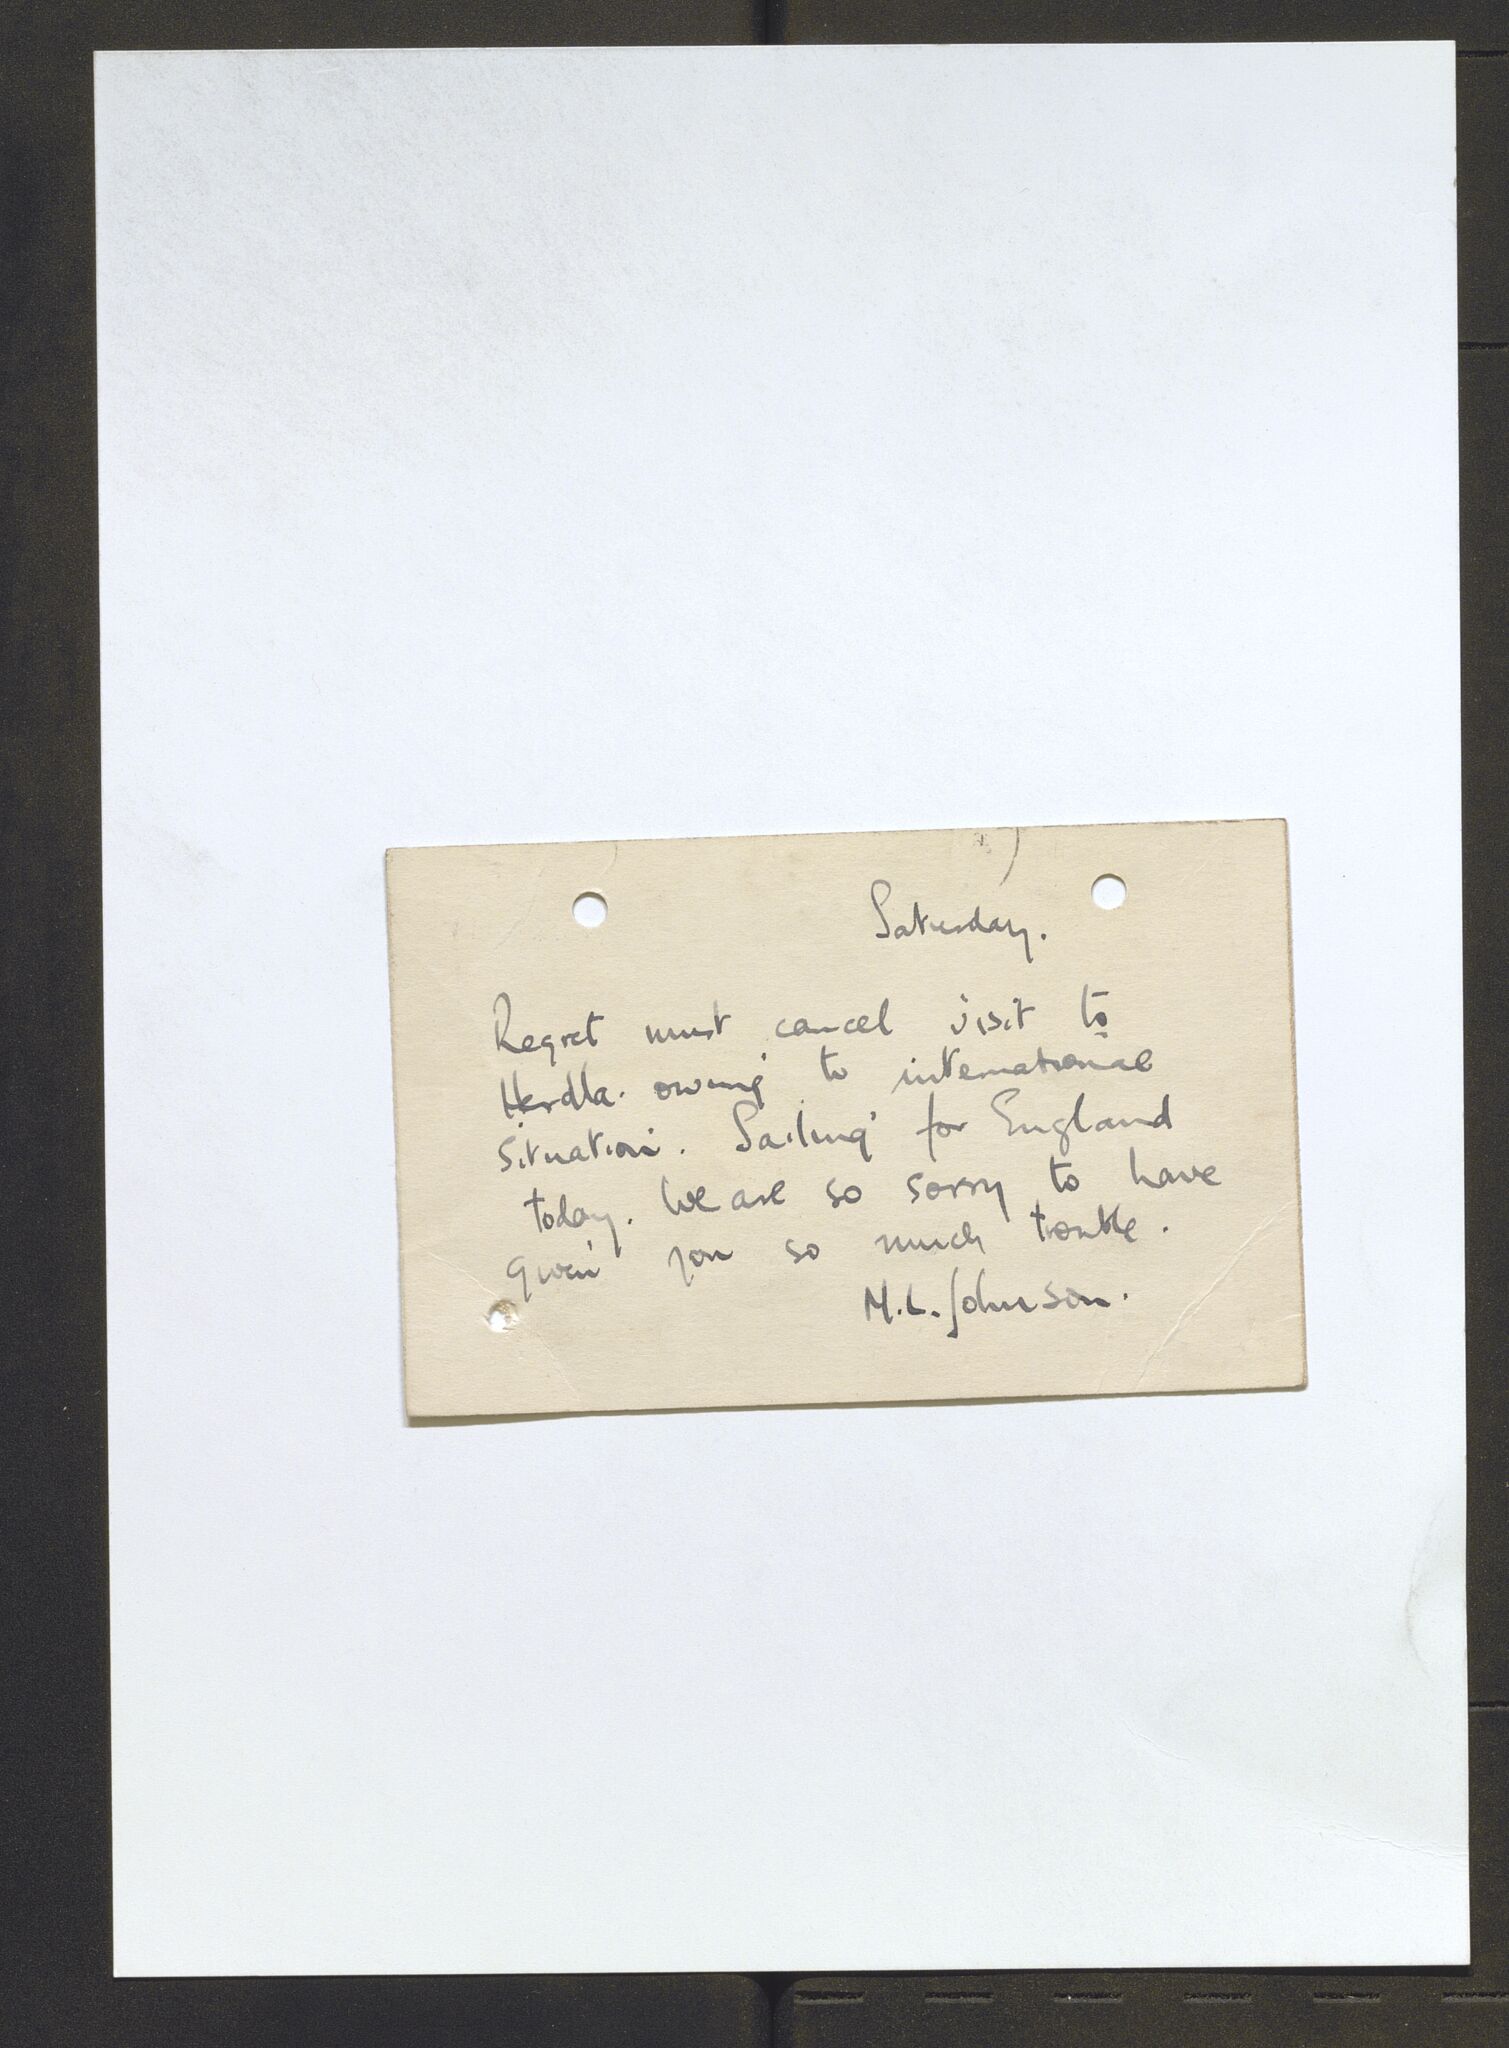 Saturday.
Regret must cancel visit to
Herdla. owing to international
situation. Sailing for England
today. We are so sorry to have
given you so much trouble.
M.L. Johnson.